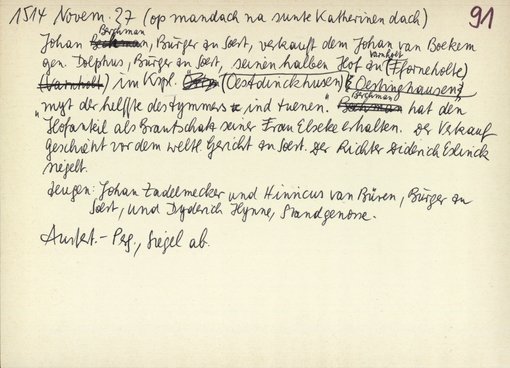 1514 Novem. 27 (op mandach na sunte Katherinen dach) 91
Berchman
Johan, Bürger zu Soest, verkauft dem Johan van Boekem
gen. Dolphus, Bürger zu Soest, seinen halben Hof zu (Fforneholte)
Varnholt
(Varnholt) im Kspl. (Oestdinckhusen) Oestinghausen,
Berchman
"myt der helffte des tymmers ind tuenen". hat den
Hofanteil als Brautschatz seiner Frau Elseke erhalten. Der Verkauf
geschäht vor dem weltl. Gericht zu Soest. Der Richter Diderich
siegelt.
Zeugen: Johan Zadelmecker und Hinricus van Büren, Bürger zu
Soest, und Dyderich Hynne, Standgenosse.
Ausfert. - Perg., Siegel ab.